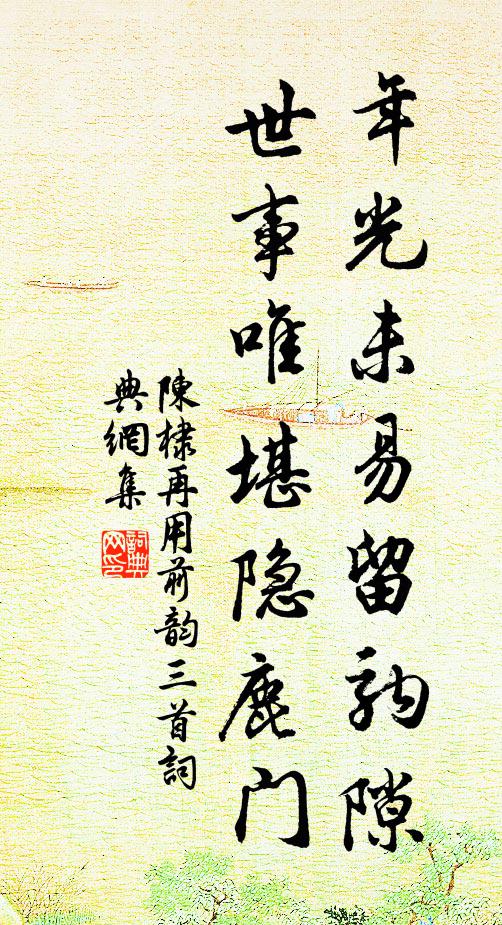 年光未易留駒隙
世事唯堪隐鹿门
陳棣再用前韵三首詞
典網集
詞典
网印